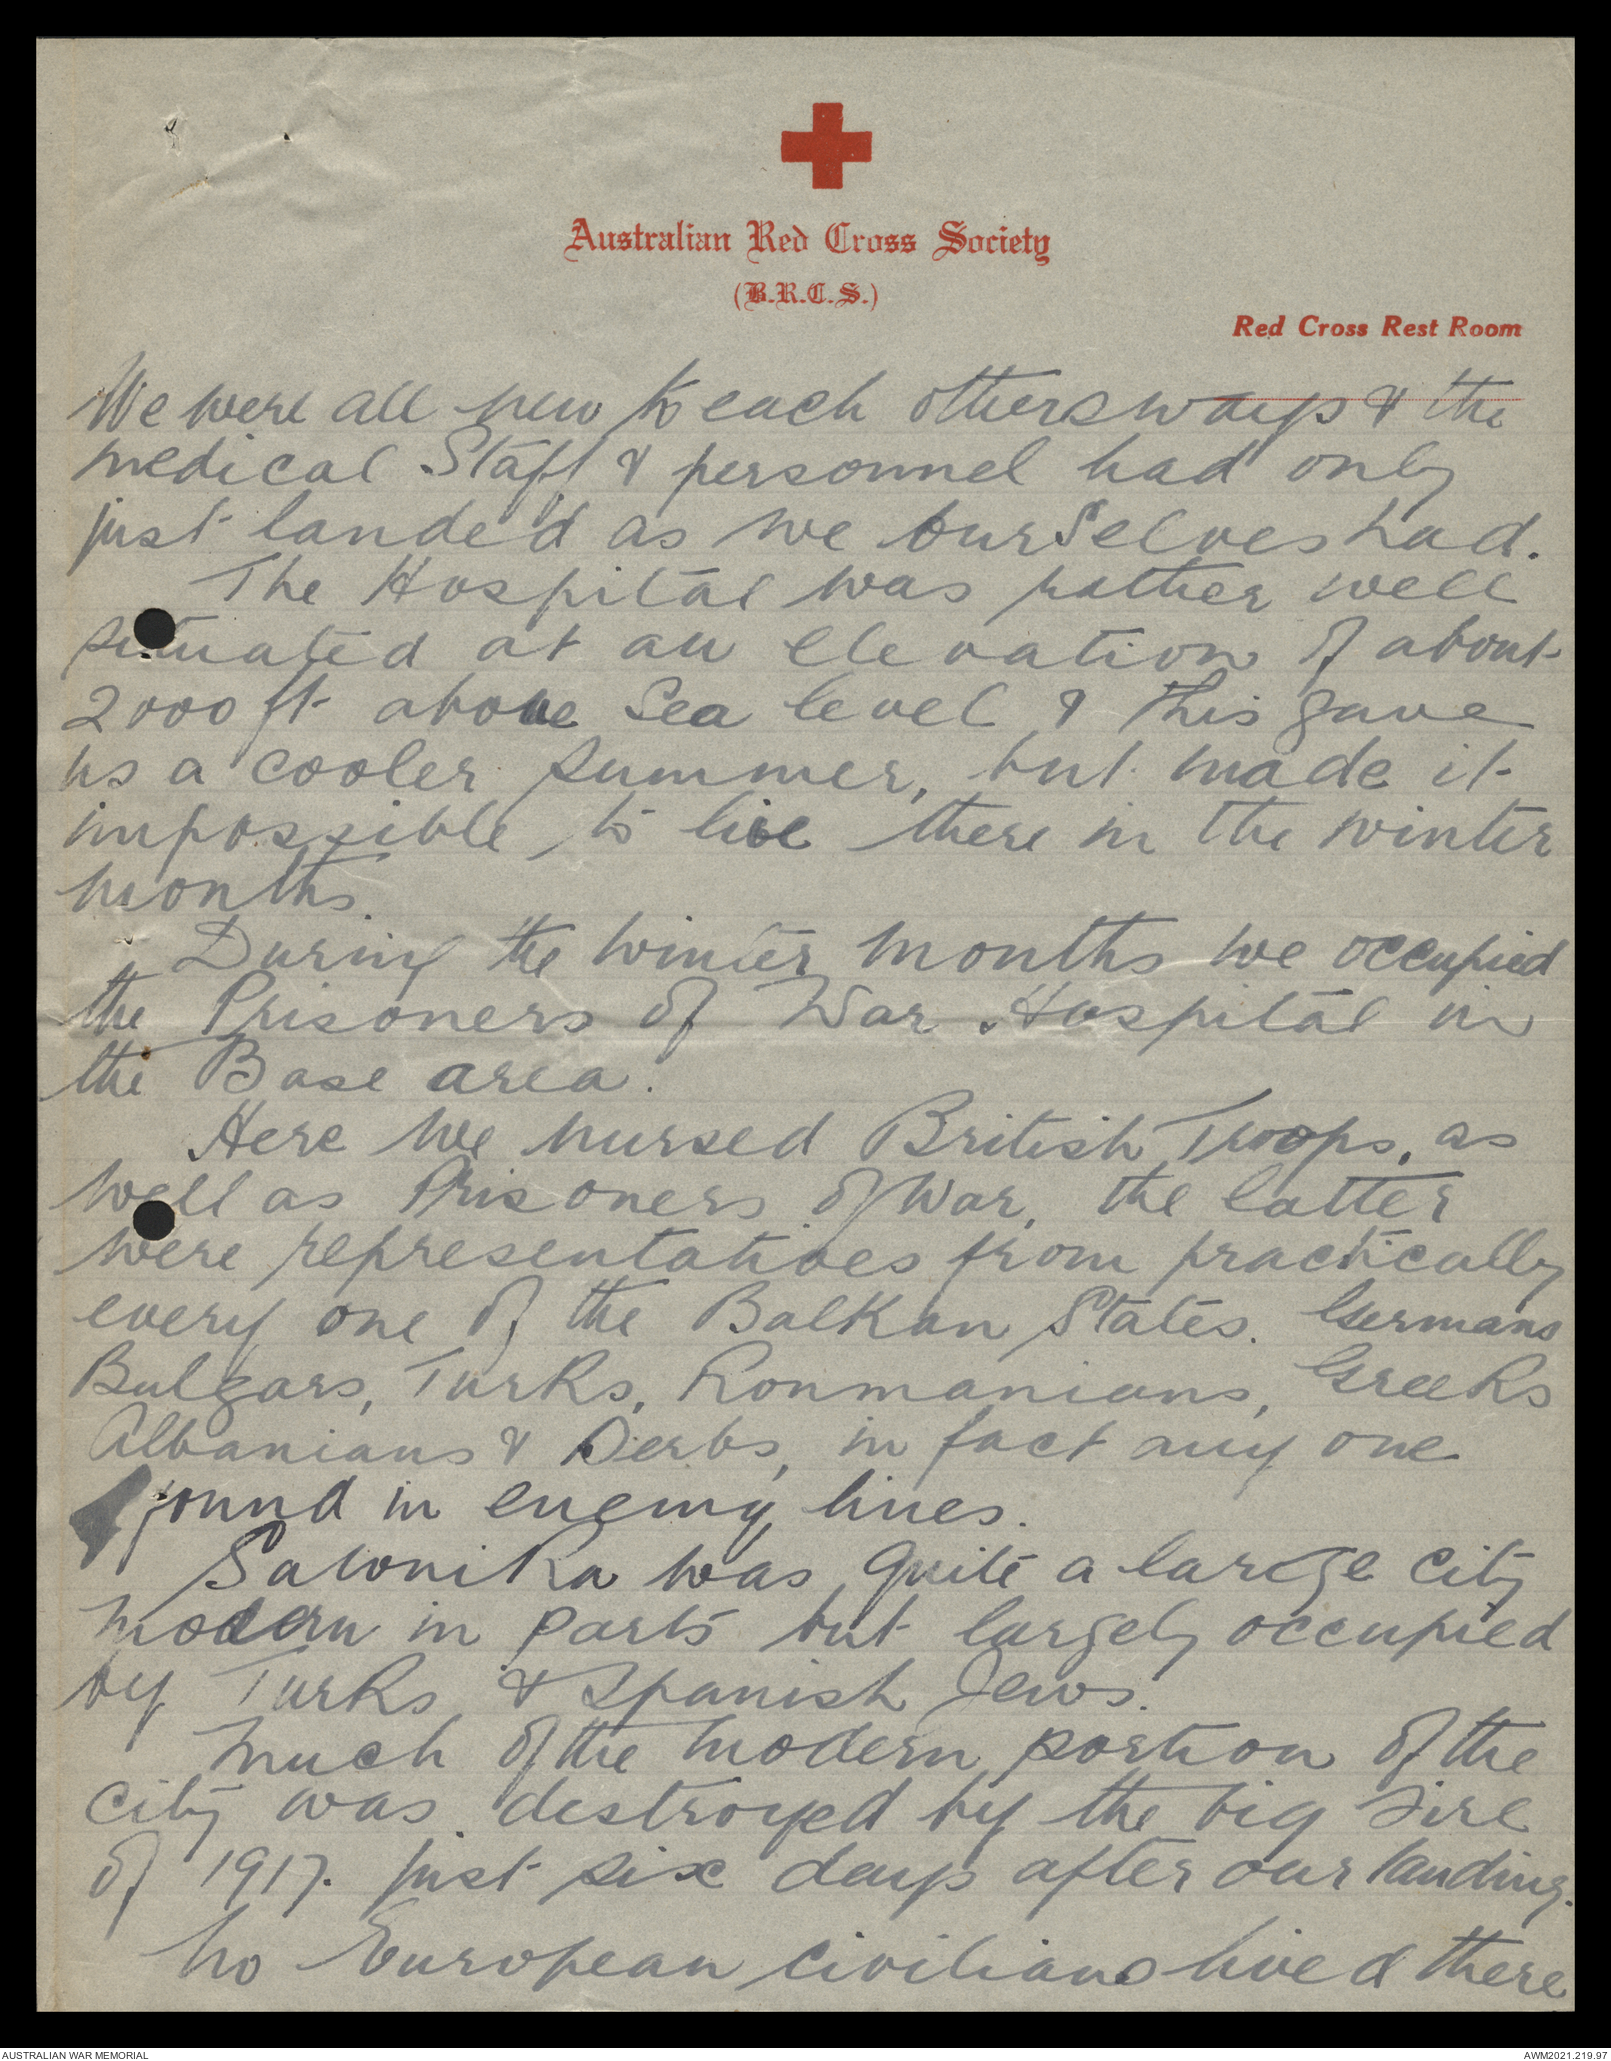 Australian Red Cross Society
(B.R.C.S.)
Red Cross Rest Room
We were all new to each others ways & the
medical Staff & personnel had only
just landed as we ourselves had.
The Hospital was rather well
situated at an elevation of about
2000 ft above Sea level & this gave
us a cooler summer, but made it
impossible to live there in the winter
months.
During the winter months we occupied
the Prisoners of War Hospital in
the Base area.
Here we nursed British Troops, as
well as Prisoners of War, the latter
were representatives from practically
every one of the Balkan States. Germans
Bulgars, Turks, Roumanians, Greeks
Albanians & Serbs, in fact any one
found in enemy lines.
Salonika was quite a large city
modern in parts but largely occupied
by Turks & Spanish Jews.
Much of the modern portion of the
city was destroyed by the big fire
of 1917. just six days after our landing.
No European civilians lived there
AUSTRALIAN WAR MEMORIAL
AWM2021.219.97